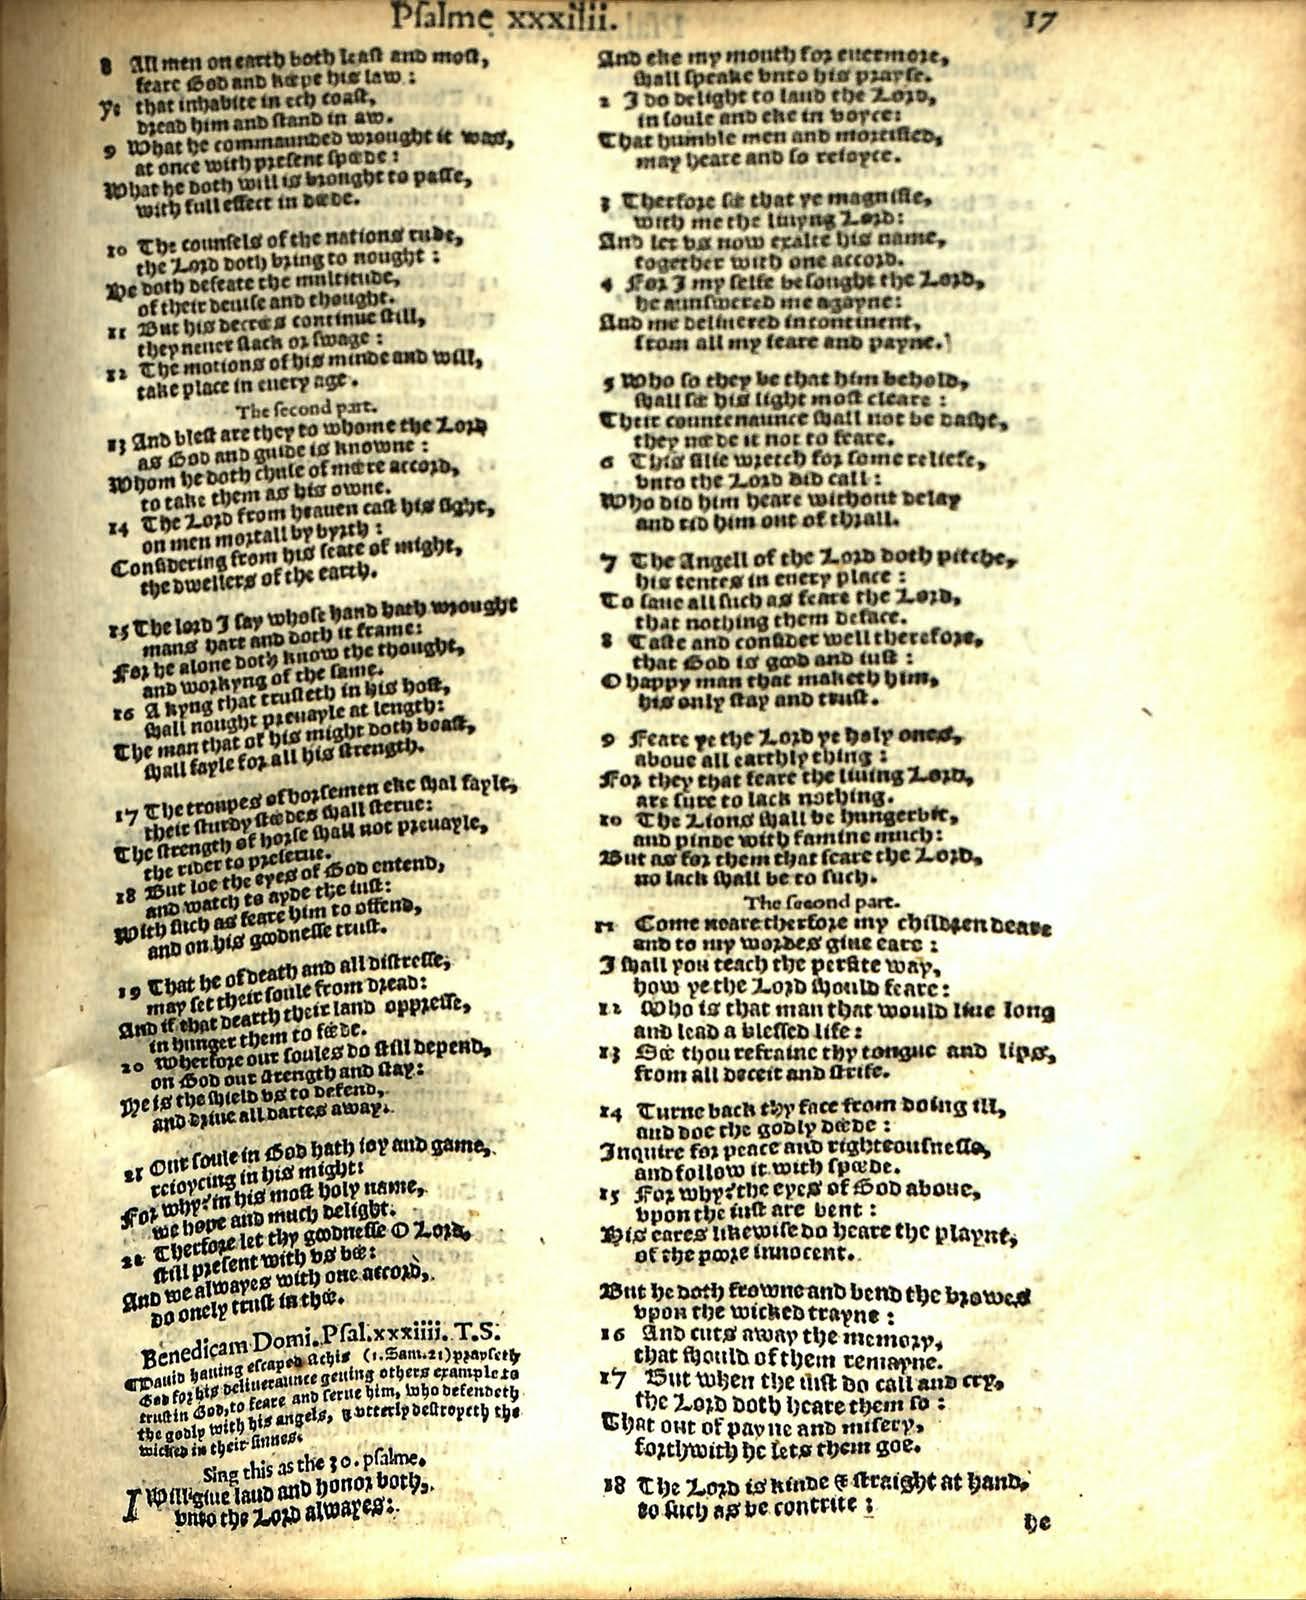 Psalme xxxiiii.
17
8 All men on earth both least and most,
feare God and kéepe his law:
Ye that inhabite in ech coast,
dread him and stand in aw.
9 What he commaunded wrought it was,
at once with present spéede:
What he doth will is brought to passe,
with full effect in déede.
10 The counsels of the nations rude,
the Lord doth bring to nought:
He doth defeate the multitude,
of their deuise and thought.
11 But his decrées continue still,
they neuer slack or swage:
12 The motions of his minde and will,
take place in euery age.
The second part.
13 And blest are they to whome the Lord
as God and guide is knowne:
Whom he doth chuse of méere accord,
to take them as his owne.
14 The Lord from heauen cast his sight,
on men mortall by byrth:
Considering from his seate of might,
the dwellers of the earth.
15 The lord I say whose hand hath wrought
mans hart and doth it frame:
For he alone doth know the thought,
and workyng of the same.
16 A kyng that trusteth in his host,
shall nought preuayle at length:
The man that of his might doth boast,
shall fayle for all his strength.
17 The troupes of horsemen eke shal fayle,
their sturdy stéedes shall sterue:
The strength of horse shall not preuayle,
the rider to preserue.
18 But loe the eyes of God entend,
and watch to ayde the iust:
With such as feare him to offend,
and on his goodnesse trust.
19 That he of death and all distresse,
may set their soule from dread:
And if that dearth their land oppresse,
in hunger them to féede.
20 Wherfore our soules do still depend,
on God our strength and stay:
He is the shield vs to defend,
and driue all dartes away.
21 Our soule in God hath ioy and game,
reioycing in his might:
For why? in his most holy name,
we hope and much delight.
22 Therfore let thy goodnesse O Lord,
still present with vs bée:
And we alwayes with one accord,
do onely trust in thée.
Benedicam Domi. Psal.xxxiiii. T.S.
¶Dauid hauing escaped Achis (1.Sam.21) prayseth
God for his deliueraunce geuing others example to
trust in God, to feare and serue him, who defendeth
the godly with his angels, & vtterly destroyeth the
wicked in their sinnes.
Sing this as the 30. psalme.
I Will giue laud and honor both,
vnto the Lord alwayes:
And eke my mouth for euermore,
shall speake vnto his prayse.
2 I do delight to laud the Lord,
in soule and eke in voyce:
That humble men and mortified,
may heare and so reioyce.
3 Therfore sée that ye magnifie,
with me the liuyng Lord:
And let vs now exalte his name,
together with one accord.
4 For I my selfe besought the Lord,
he aunswered me agayne:
And me deliuered incontinent,
from all my feare and payne.
5 Who so they be that him behold,
shall sée his light most cleare:
Their countenaunce shall not be dasht,
they néede it not to feare.
6 This silie wretch for some reliefe,
vnto the Lord did call:
Who did him heare without delay
and rid him out of thrall.
7 The Angell of the Lord doth pitche,
his tentes in euery place:
To saue all such as feare the Lord,
that nothing them deface.
8 Taste and consider well therefore,
that God is good and iust:
O happy man that maketh him,
his only stay and trust.
9 Feare ye the Lord ye holy ones,
aboue all earthly thing:
For they that feare the liuing Lord,
are sure to lack nothing.
10 The Lions shall be hungerbit,
and pinde with famine much:
But as for them that feare the Lord,
no lack shall be to such.
The second part.
11 Come neare therfore my children deare
and to my wordes giue eare:
I shall you teach the perfite way,
how ye the Lord should feare:
12 Who is that man that would liue long
and lead a blessed life:
13 Sée thou refraine thy tongue and lips,
from all deceit and strife.
14 Turne back thy face from doing ill,
and doe the godly déede:
Inquire for peace and righteousnesse,
and follow it with spéede.
15 For why? the eyes of God aboue,
vpon the iust are bent:
His eares likewise do heare the playnt,
of the poore innocent.
But he doth frowne and bend the browes
vpon the wicked trayne:
16 And cuts away the memory,
that should of them remayne.
17 But when the iust do call and cry,
the Lord doth heare them so:
That out of payne and misery,
forthwith he lets them goe.
18 The Lord is kinde & straight at hand,
to such as be contrite:
He